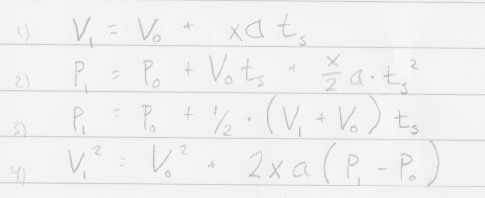 1) V₁ = V₀ + xa tₛ
2) P₁ = P₀ + V₀tₛ + x/2 a·tₛ²
3) P₁ = P₀ + 1/2 · (V₁ + V₀) tₛ
4) V₁² = V₀² + 2xa(P₁ - P₀)